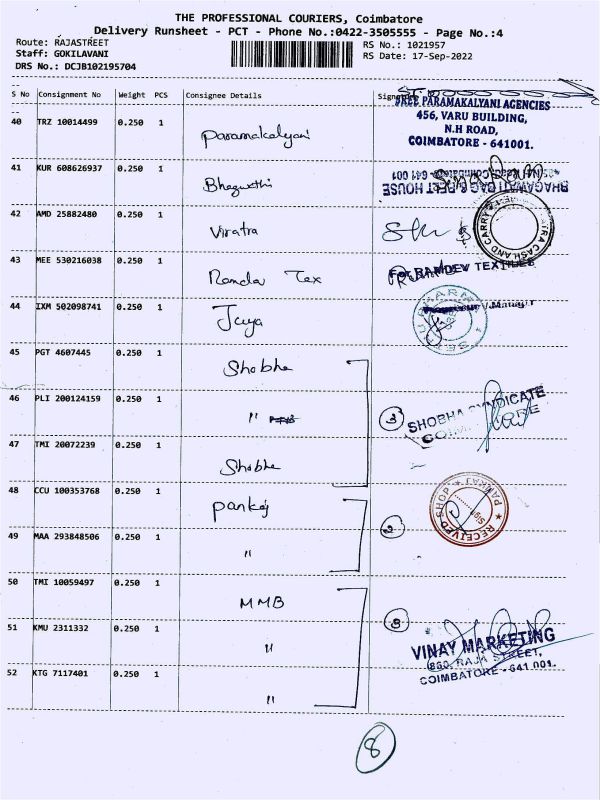 THE PROFESSIONAL COURIERS, Coimbatore
Delivery Runsheet - PCT - Phone No.:0422-3505555 - Page No.:4
Route: RAJASTREET
Staff: GOKILAVANI
DRS No.: DCJB102195704
RS No.: 1021957
RS Date: 17-Sep-2022
S No Consignment No Weight PCS Consignee Details Signature
40 TRZ 10014499 0.250 1 Paramakalyani
SREE PARAMAKALYANI AGENCIES
456, VARU BUILDING,
N.H ROAD,
COIMBATORE - 641001.
41 KUR 608626937 0.250 1 Bhagwathi
BHAGAWATI BAG & BELT HOUSE
42 AMD 25882480 0.250 1 Viratra
CASH AND CARRY
43 MEE 530216038 0.250 1 Ramdev Tex
For RAMDEV TEXTILES
44 IXM 502098741 0.250 1 Jaya
Manager
45 PGT 4607445 0.250 1 Shobha
46 PLI 200124159 0.250 1 "
3
SHOBHA SYNDICATE
COIMBATORE
47 TMI 20072239 0.250 1 Shobha
48 CCU 100353768 0.250 1 Pankaj
PANKAJ SHOP
RECEIVED
2
49 MAA 293848506 0.250 1 "
50 TMI 10059497 0.250 1 MMB
3
51 KMU 2311332 0.250 1 "
VINAY MARKETING
860, RAJA STREET,
COIMBATORE - 641 001.
52 KTG 7117401 0.250 1 "
8